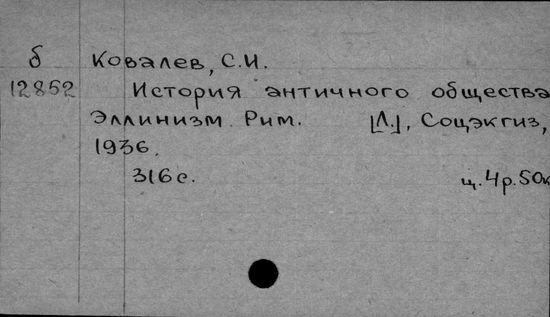 б Ковалев, С.И.
12852 История античного общества
Эллинизм. Рим. [Л.], Соцэкгиз,
1936.
316с. ц.4р.50к